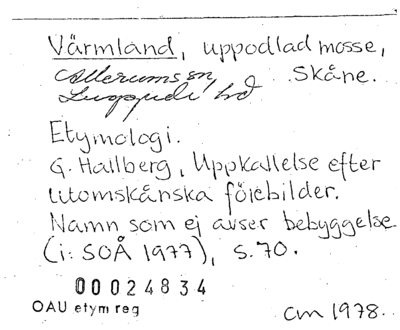 Värmland, uppodlad mosse,
Allerums sn, Skåne.
Luggude hd
Etymologi.
G. Hallberg, Uppkallelse efter
utomskånska förebilder.
Namn som ej avser bebyggelse
(i: SOÅ 1977), s. 70.
00024834
OAU etym reg
cm 1978.